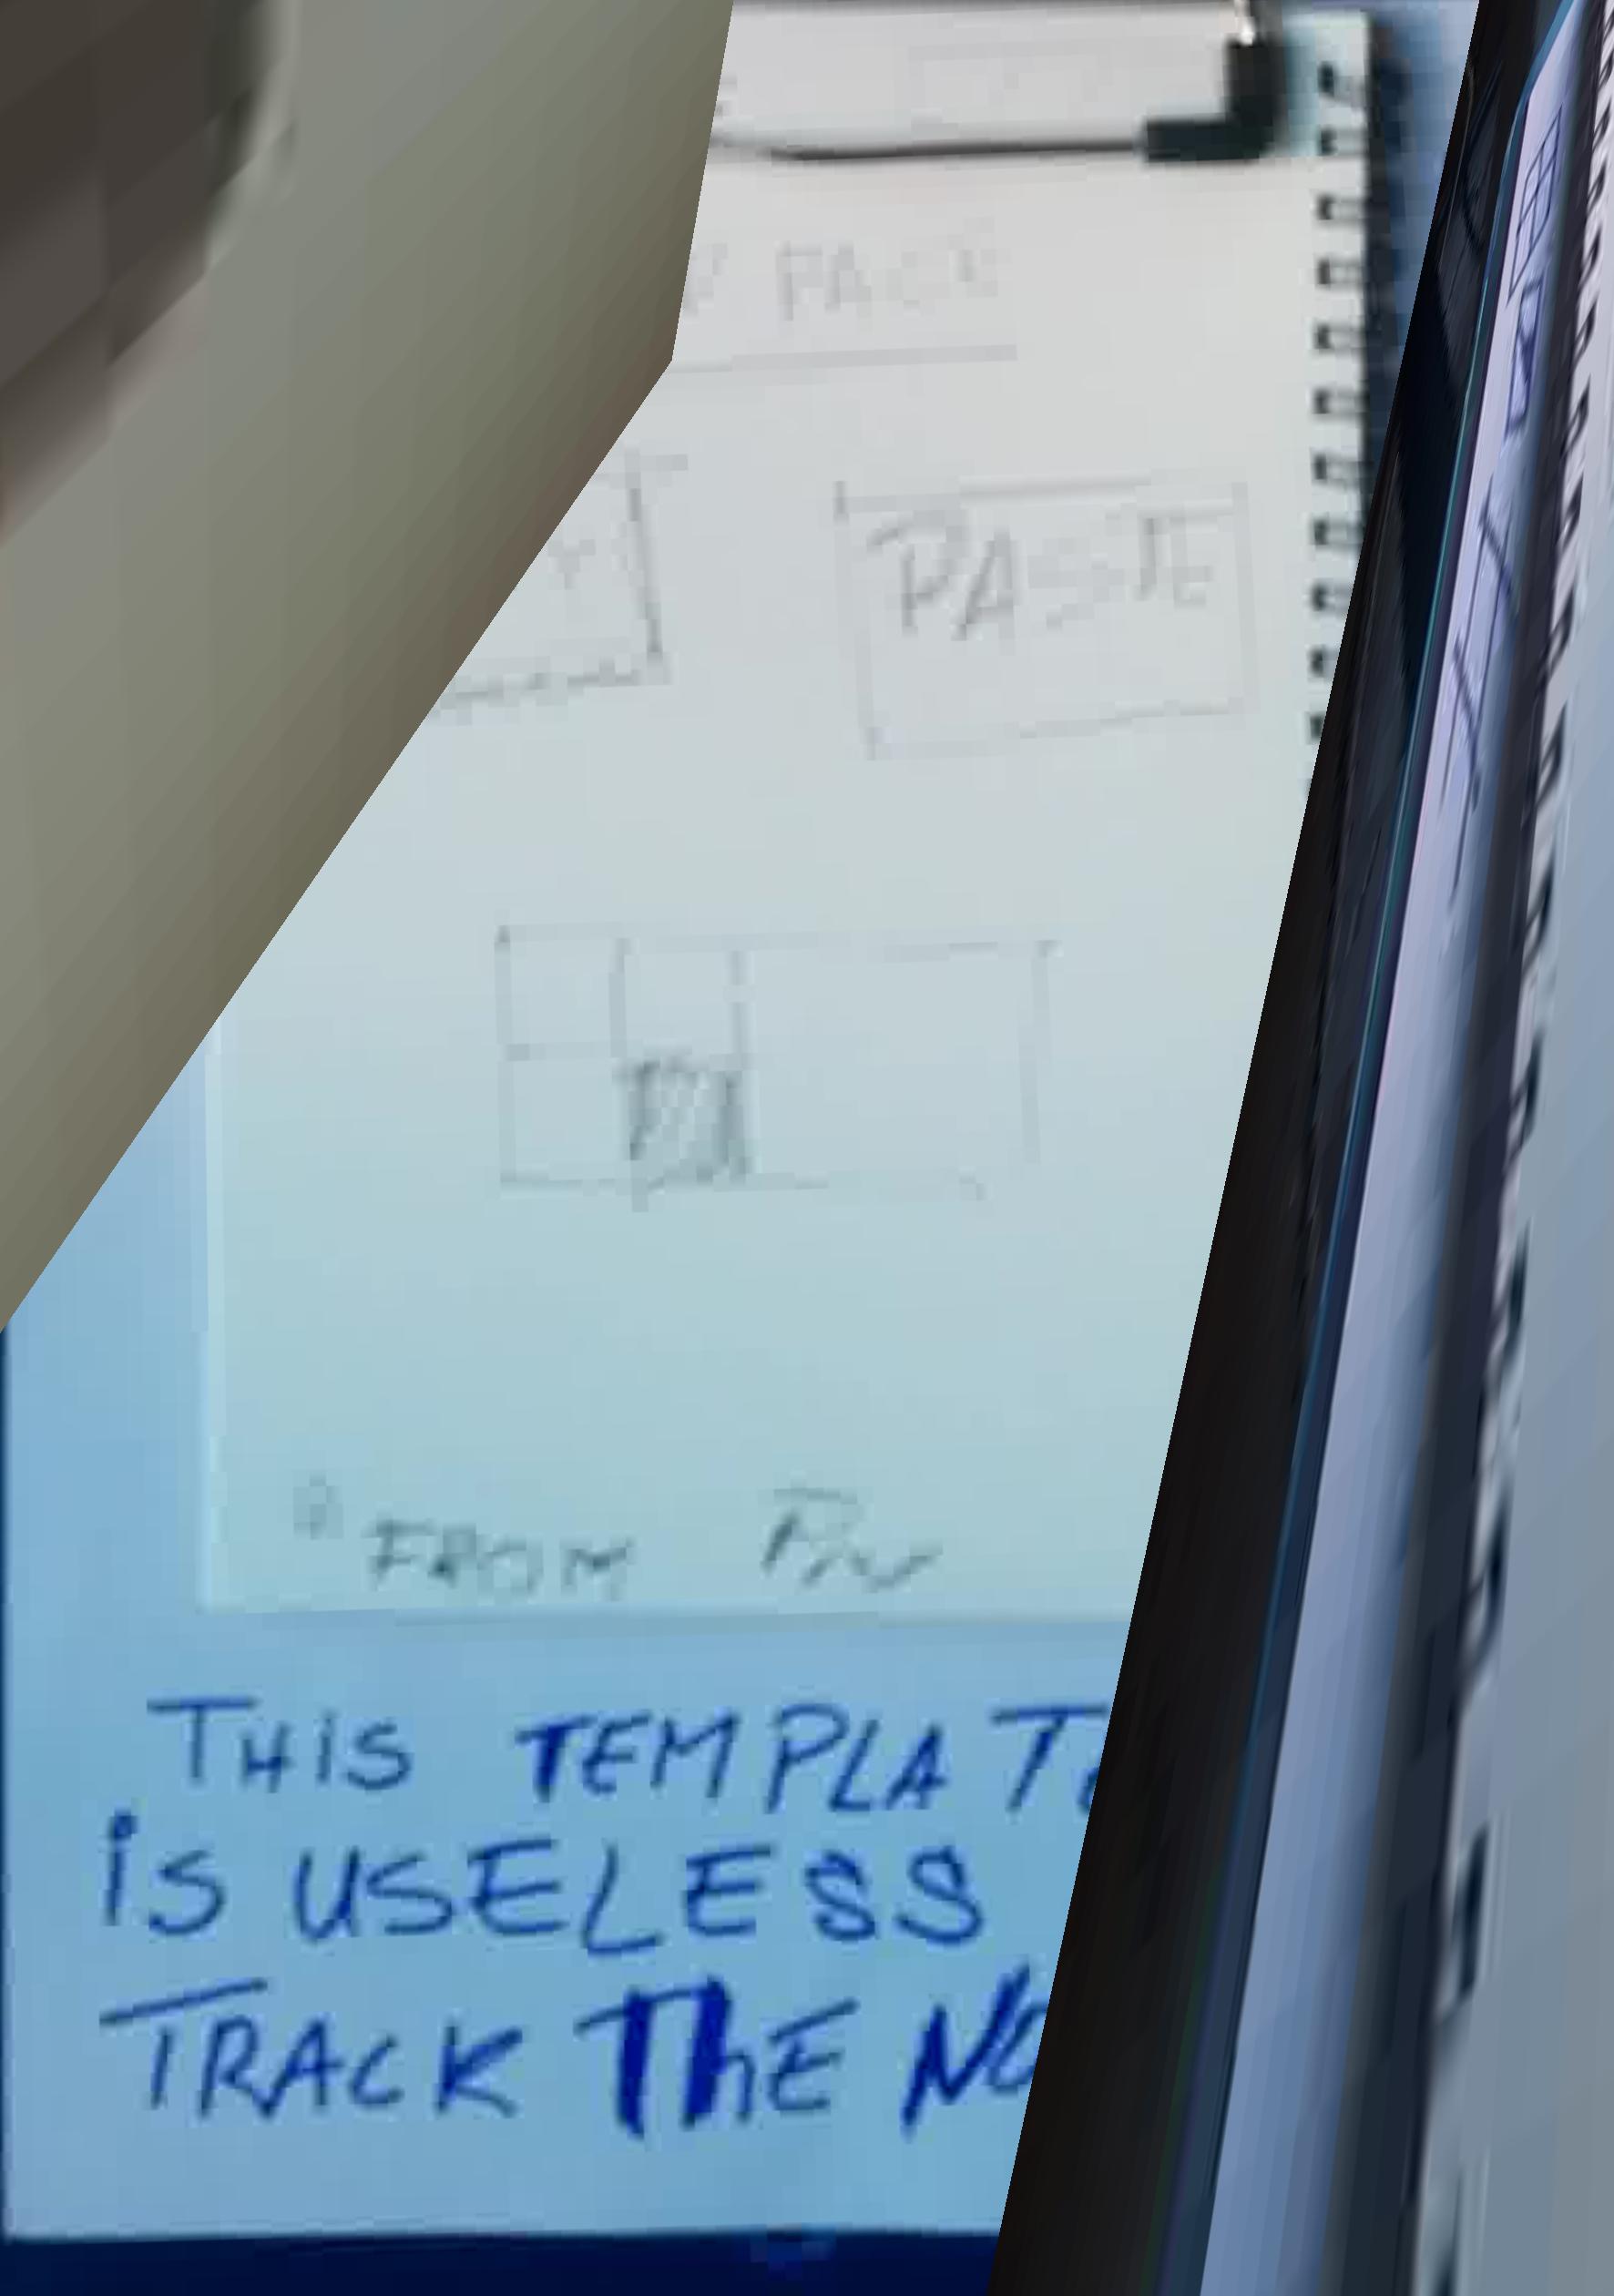 PAGE
PASTE
FROM
THiS TEMPLATE
iS USELESS
TRACK ThE